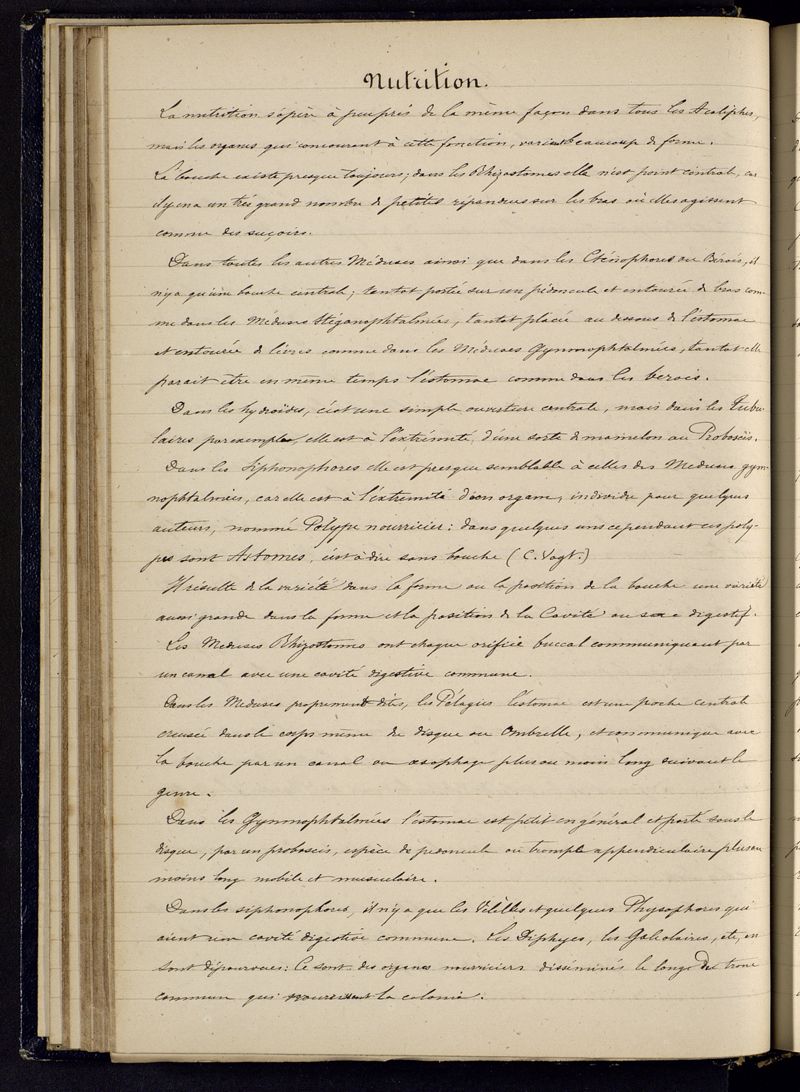 Nutrition.
La nutrition s'opère à peu près de la même façon dans tous les Acalèphes,
mais les organes qui concourent à cette fonction, varient beaucoup de forme.
La bouche existe presque toujours; dans les Rhizostomes elle n'est point centrale, car
il y en a un très grand nombre de petites répandues sur les bras où elles agissent
comme des suçoirs.
Dans toutes les autres Méduses ainsi que dans les Cténophores ou Béroïs, il
n'y a qu'une bouche centrale; tantot portée sur un pédoncule et entourée de bras com-
me dans les Méduses Stéganophtalmées, tantot placée au dessous de l'estomac
et entourée de lèvres comme dans les Méduses Gymnophtalmées, tantot elle
parait être en même temps l'estomac comme dans les berois.
Dans les hydroïdes, c'est une simple ouverture centrale, mais dans les Tubu-
laires par exemple, elle est à l'extrémité d'une sorte de mamelon ou Proboscis.
Dans les Siphonophores elle est presque semblable à celles des Meduses gym-
nophtalmées, car elle est à l'extremité d'un organe, individu pour quelques
auteurs, nommé Polype nourricier: dans quelques uns cependant ces poly-
pes sont Astomes, c'est à dire sans bouche (C. Vogt.)
Il résulte de la variété dans la forme ou la position de la bouche une variété
aussi grande dans la forme et la position de la Cavité ou sac digestif.
Les Meduses Rhizostomes ont chaque orifice buccal communiquant par
un canal avec une cavité digestive commune.
Dans les Meduses proprement dites, les Pélagies l'estomac est une poche centrale
creusée dans le corps même du disque ou Ombrelle, et communique avec
la bouche par un canal ou œsophage plus ou moins long suivant le
genre.
Dans les Gymnophtalmées l'estomac est petit en général et porté sous le
disque, par un proboscis, espèce de pedoncule ou trompe appendiculaire plus ou
moins long mobile et musculaire.
Dans les siphonophores, il n'y a que les Vélelles et quelques Physophores qui
aient une cavité digestive commune. Les Diphyes, les Galéolaires, etc, en
sont dépourvues: Ce sont des organes nourriciers disséminés le long du tronc
commun qui nourrissent la colonie.